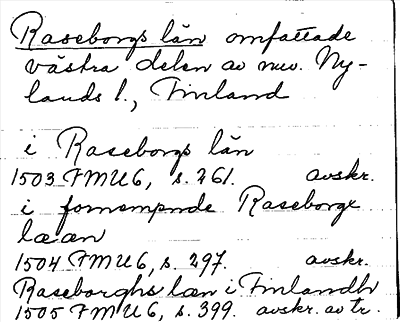 Raseborgs län omfattade
västra delen av nuv. Ny-
lands l., Finland
i Raseborgs län
1503 FMU6, s. 261. avskr.
i fornempnde Raseborgx
lææn
1504 FMU6, s. 297. avskr.
Raseborghs læn i Finlandh
1505 FMU6, s. 399. avskr. av tr.